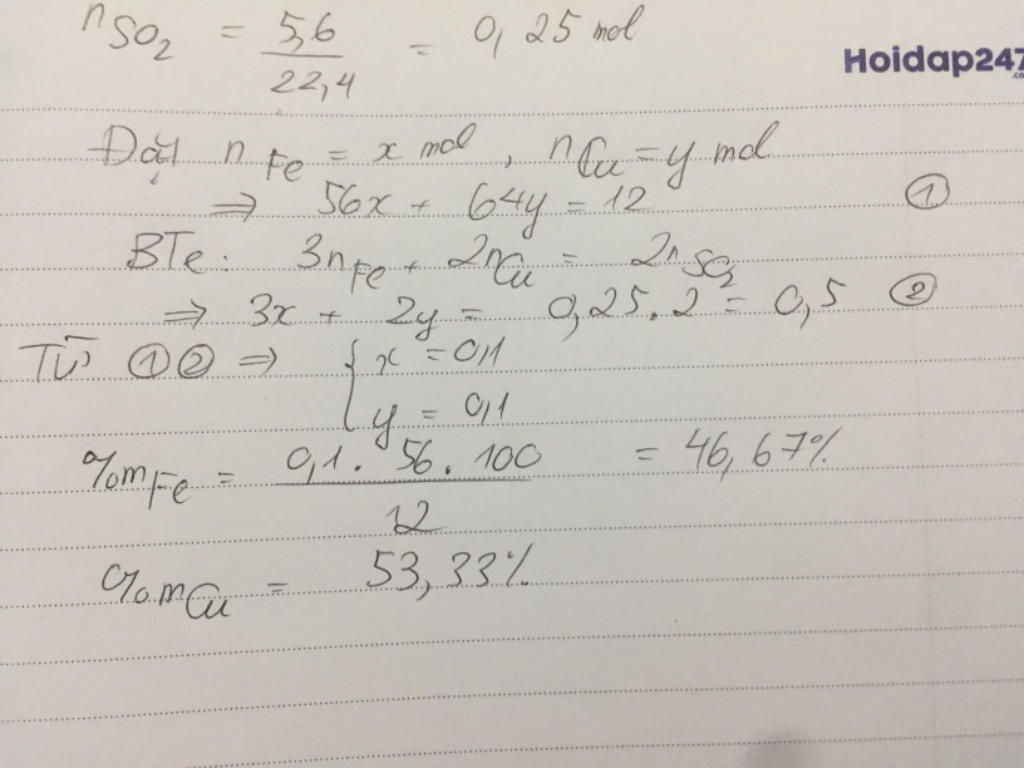 nSO₂ = 5,6 / 22,4 = 0,25 mol
Hoidap247
.co
Đặt nFe = x mol, nCu = y mol
⇒ 56x + 64y = 12 ①
BTe: 3nFe + 2nCu = 2nSO₂
⇒ 3x + 2y = 0,25.2 = 0,5 ②
Từ ①② ⇒ { x = 0,1
y = 0,1
%mFe = 0,1.56.100 / 12 = 46,67%
%mCu = 53,33%